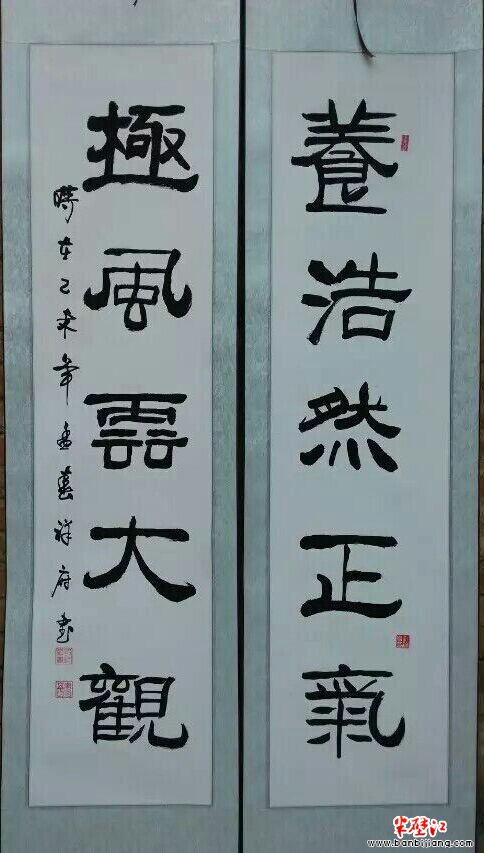 養浩然正氣
極風雲大觀
時在乙未年孟春祥府書
半壁江
www.banbijiang.com